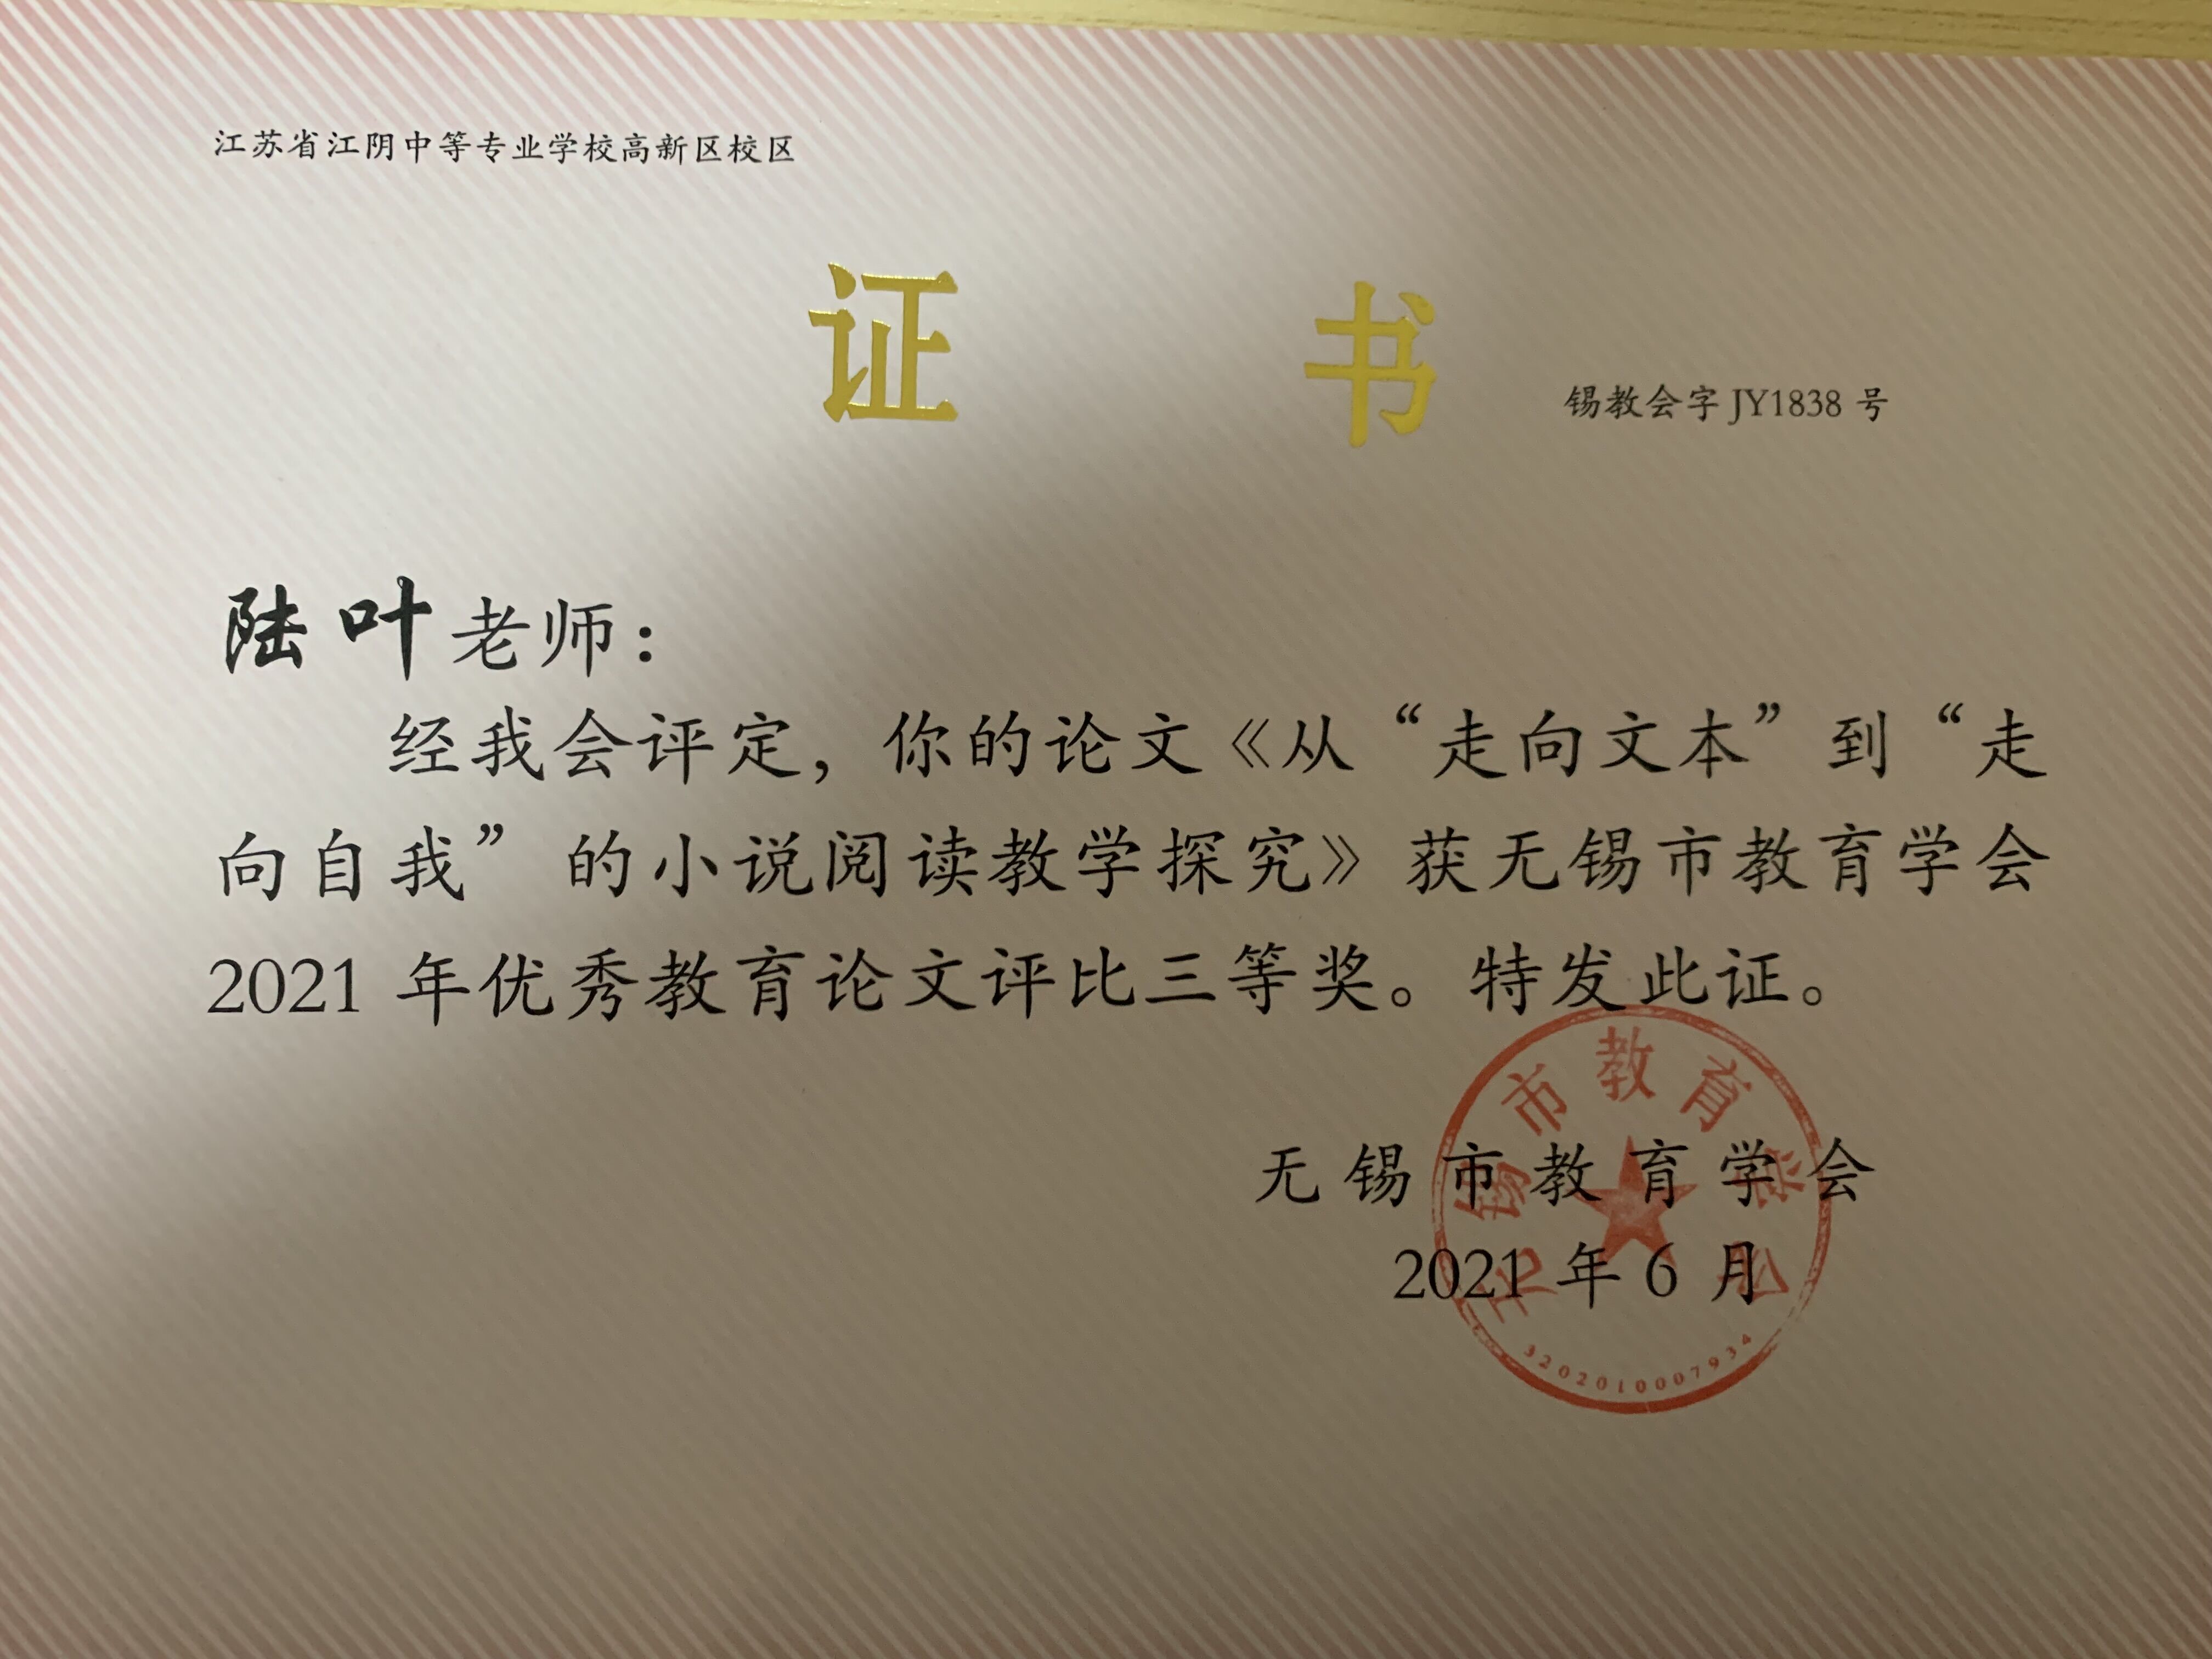 江苏省江阴中等专业学校高新区校区
证书
锡教会字 JY1838 号
陆叶老师：
经我会评定，你的论文《从“走向文本”到“走
向自我”的小说阅读教学探究》获无锡市教育学会
2021 年优秀教育论文评比三等奖。特发此证。
无锡市教育学会
2021 年 6 月
无锡市教育学会
3202010007934